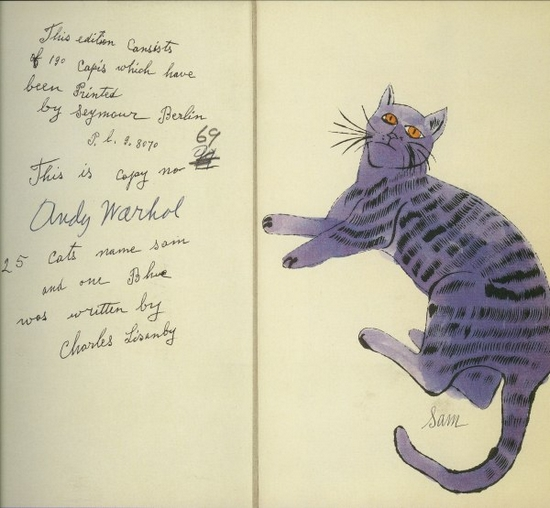 This edition Consists
of 190 Capis which have
been Printed
by Seymour Berlin
P. L. 9. 8070
69
This is copy no
Andy Warhol
25 Cats name sam
and one Blue
was written by
Charles Lisanby
Sam